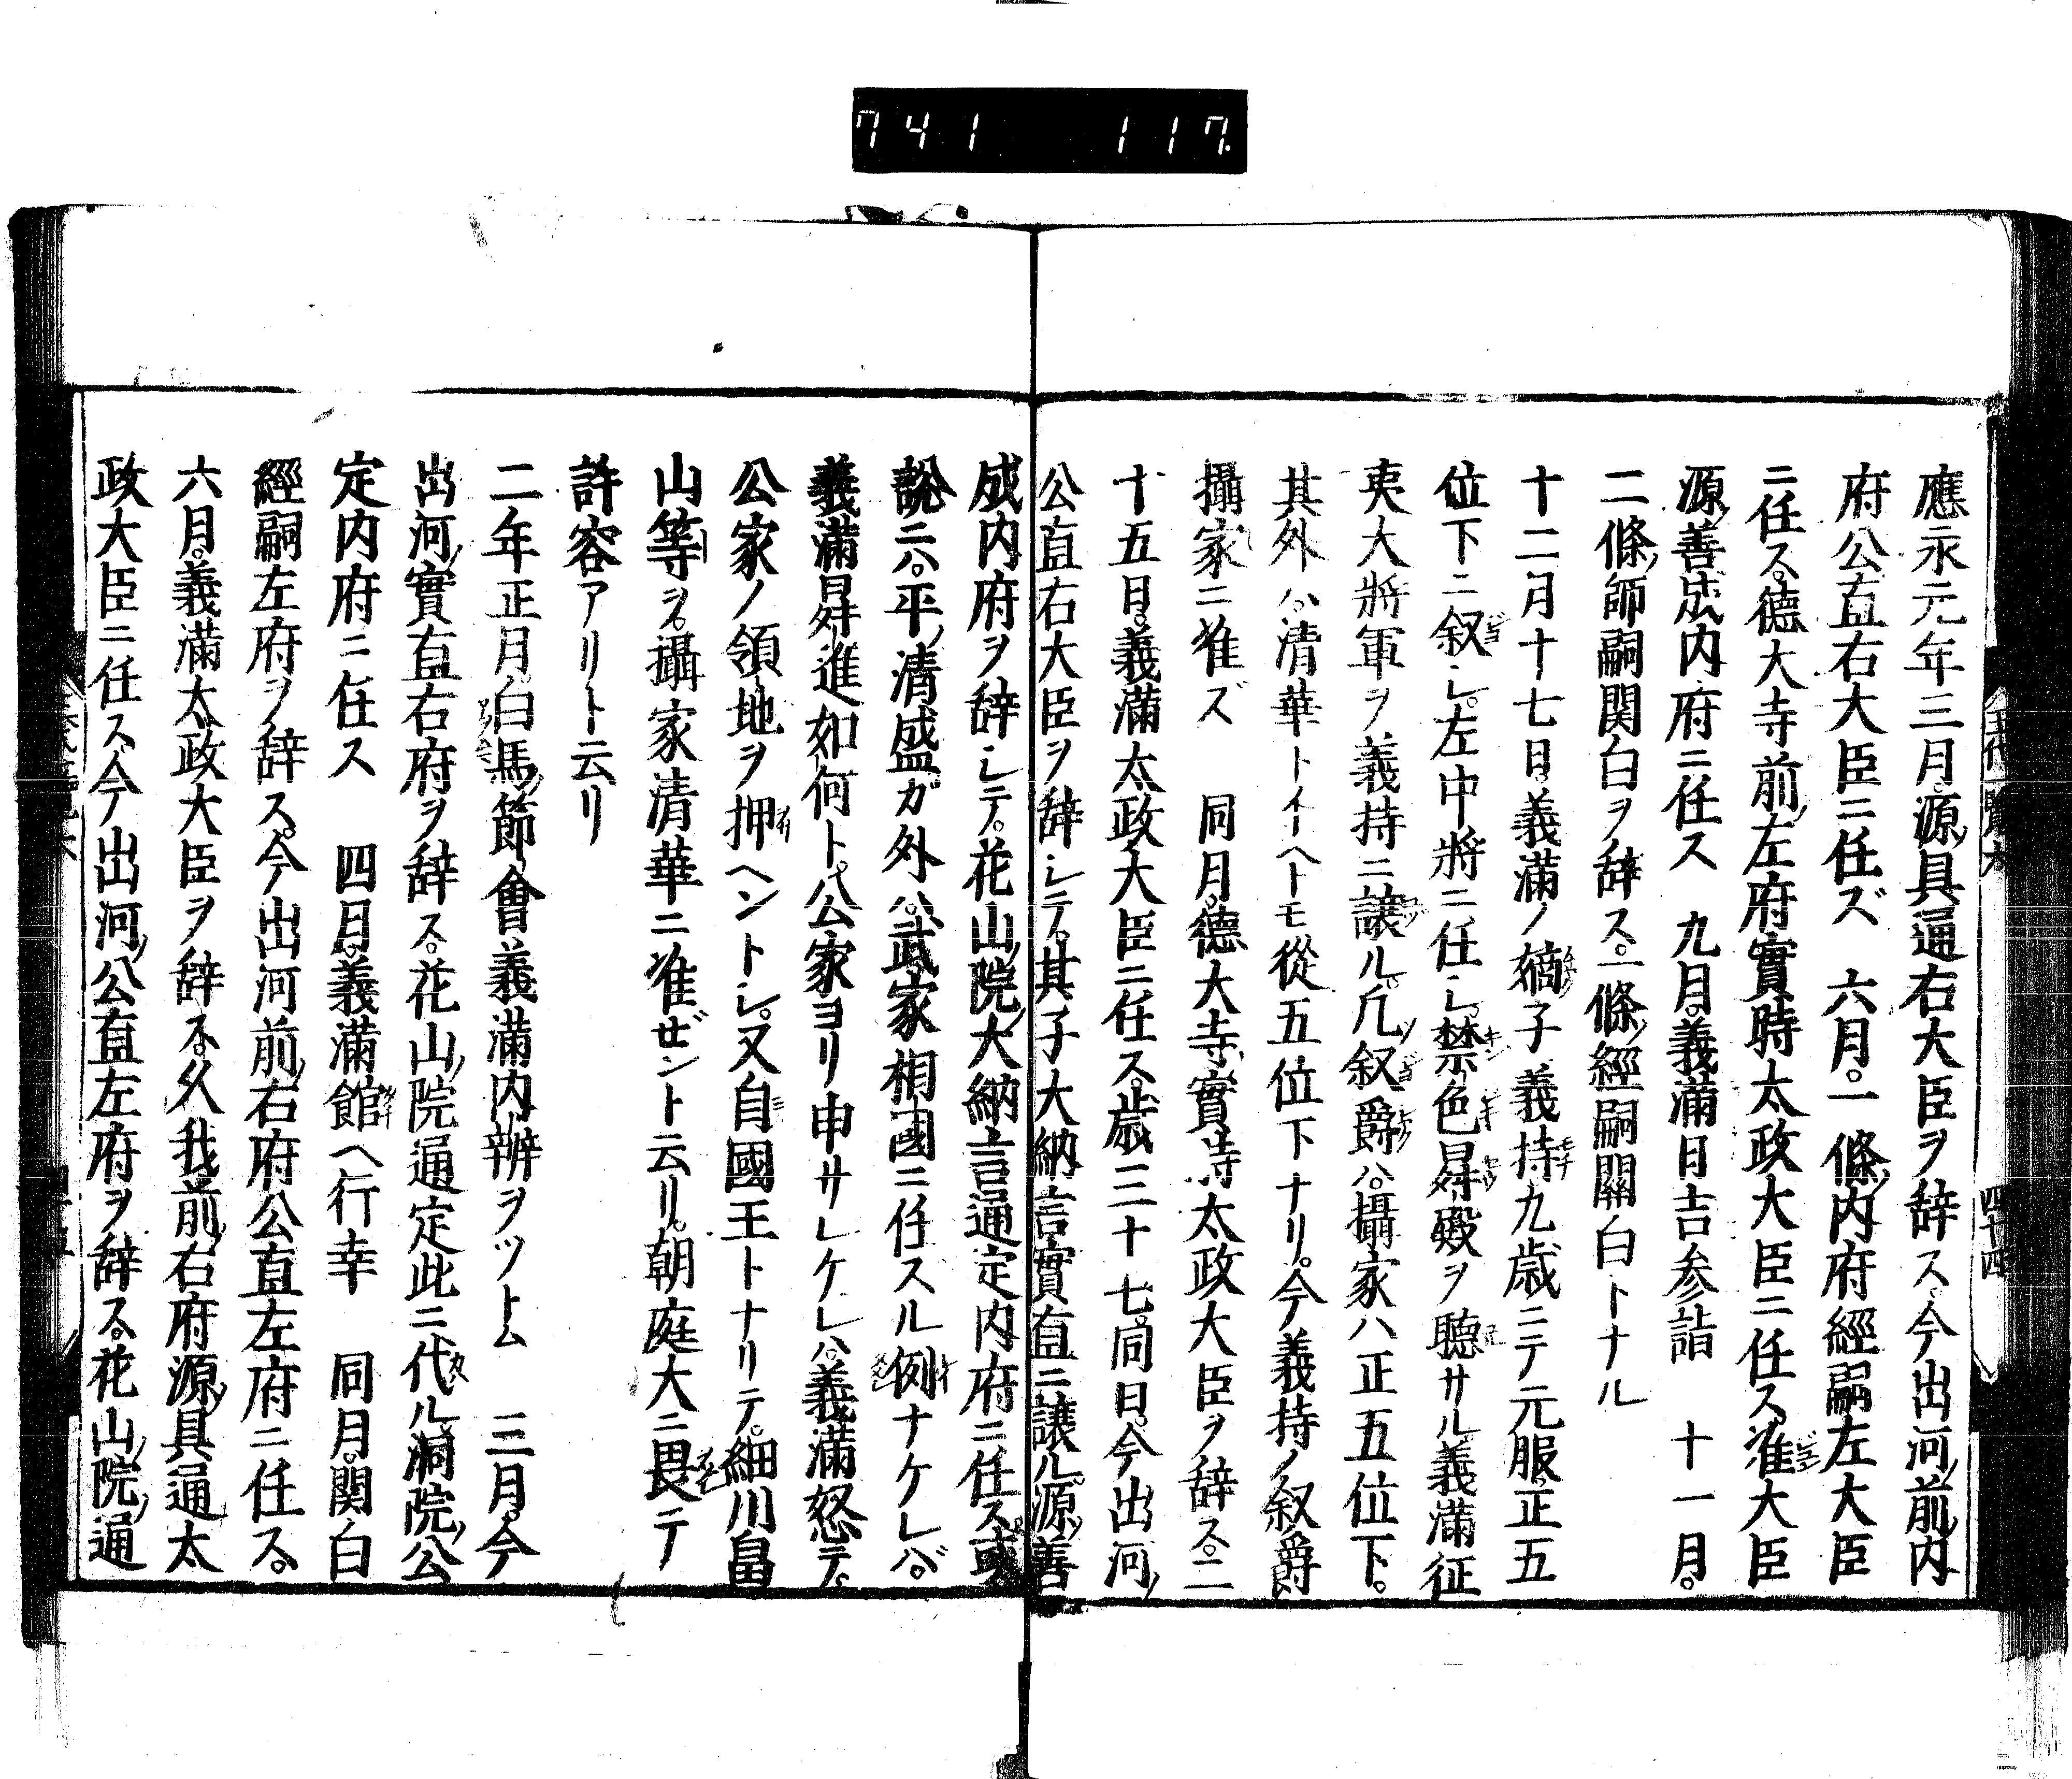 741 117.
應永元年三月。源具通右大臣ヲ辞ス。今出河前内
府公直右大臣ニ任ズ 六月。一條内府經嗣左大臣
ニ任ス。德大寺前左府實時太政大臣ニ任ス。准大臣
源善成内府ニ任ス 九月。義滿日吉参詣 十一月。
二條師嗣関白ヲ辞ス。一條經嗣關白トナル
十二月十七日。義滿ノ嫡子義持九歳ニテ元服。正五
位下ニ叙シ。左中將ニ任シ。禁色昇殿ヲ聴サル。義滿征
夷大將軍ヲ義持ニ譲ル。凡叙爵ハ。攝家ハ正五位下。
其外ハ。清華トイヘトモ從五位下ナリ。今義持ノ叙爵
攝家ニ准ズ 同月。德大寺實時太政大臣ヲ辞ス。二
十五日。義滿太政大臣ニ任ス。歳三十七。同日。今出河
公直右大臣ヲ辞シテ。其子大納言實直ニ譲ル。源善
成内府ヲ辞シテ。花山院大納言通定内府ニ任ス。或
說ニハ。平清盛ガ外ハ。武家相國ニ任スル例ナケレバ。
義滿昇進如何ト。公家ヨリ申サレケレハ。義滿怒テ。
公家ノ領地ヲ押ヘントシ。又自國王トナリテ。細川畠
山等ヲ。攝家清華ニ准ゼント云リ。朝庭大ニ畏テ
許容アリト云リ
二年正月白馬節會義滿内辨ヲツトム 三月。今
出河實直右府ヲ辞ス。花山院通定此ニ代ル。洞院公
定内府ニ任ス 四月。義滿館ヘ行幸 同月。関白
經嗣左府ヲ辞ス。今出河前右府公直左府ニ任ス。
六月。義滿太政大臣ヲ辞ス。久我前右府源具通太
政大臣ニ任ス。今出河公直左府ヲ辞ス。花山院通